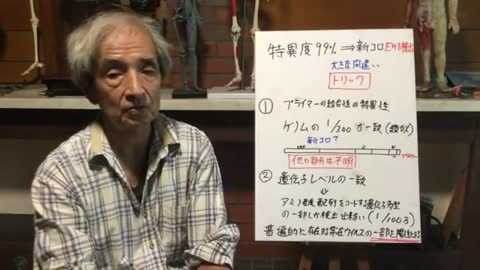 特異度99%⇒新コロ
大きな間違い
トリック
① プライマーの結合性の特異性
ゲノムの 1/300 が一致
新コロ?
他の部分は不明
② 遺伝子レベルの一致
⇓
アミノ酸配列をコードする遺伝子
の一部しか検出出来ない (1/100万)
普遍的に存在する常在ウイルスの一部を